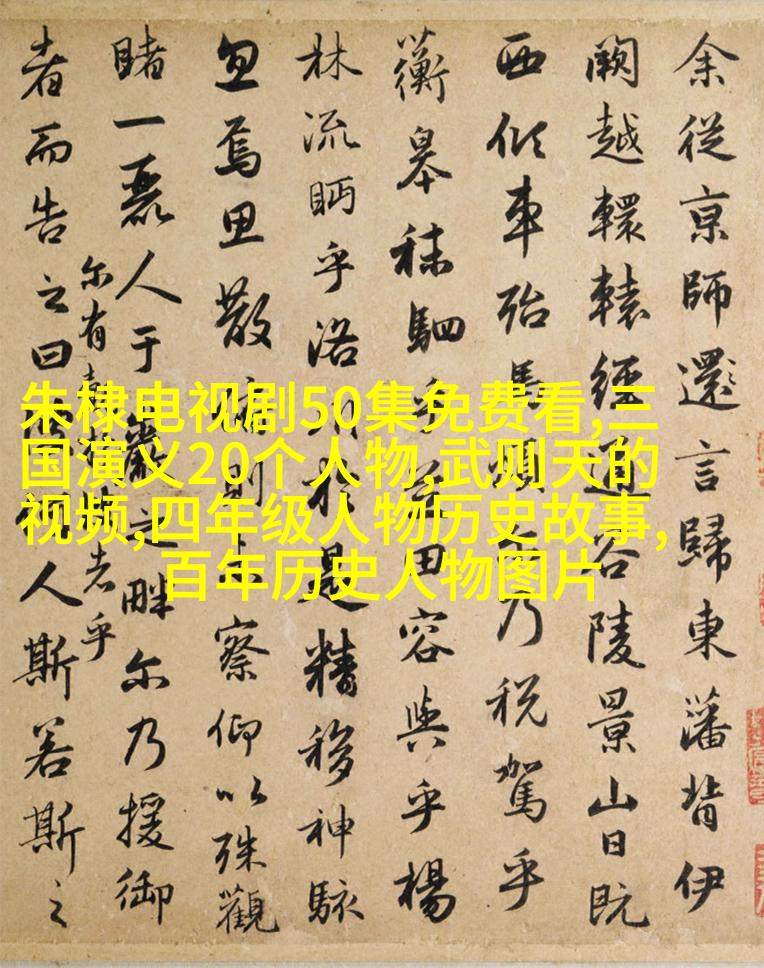 余從京師還言歸東藩背伊
闕越轘轅經通谷陵景山日既
西傾車殆馬煩乃税駕乎
蘅皋秣駟乎田容與乎楊
林流眄乎洛於是精移神駭
忽焉思散則察仰以殊觀
睹一麗人于巖之畔尔乃援御
者而告之曰人斯若斯之
尔有者乎
朱棣电视剧50集免费看,三
国演义20个人物,武则天的
视频,四年级人物历史故事,
百年历史人物图片